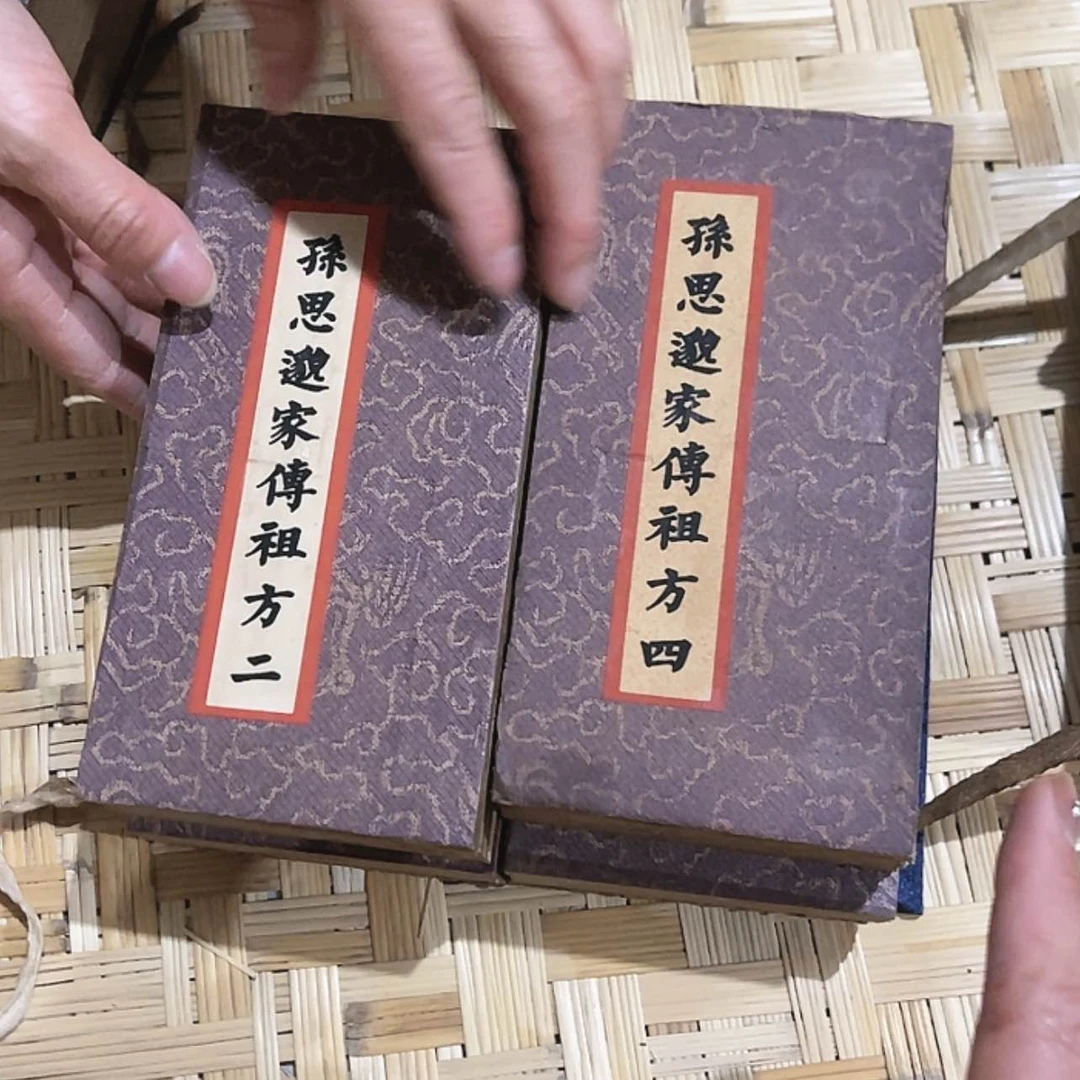 孫思邈家傳祖方二
孫思邈家傳祖方四